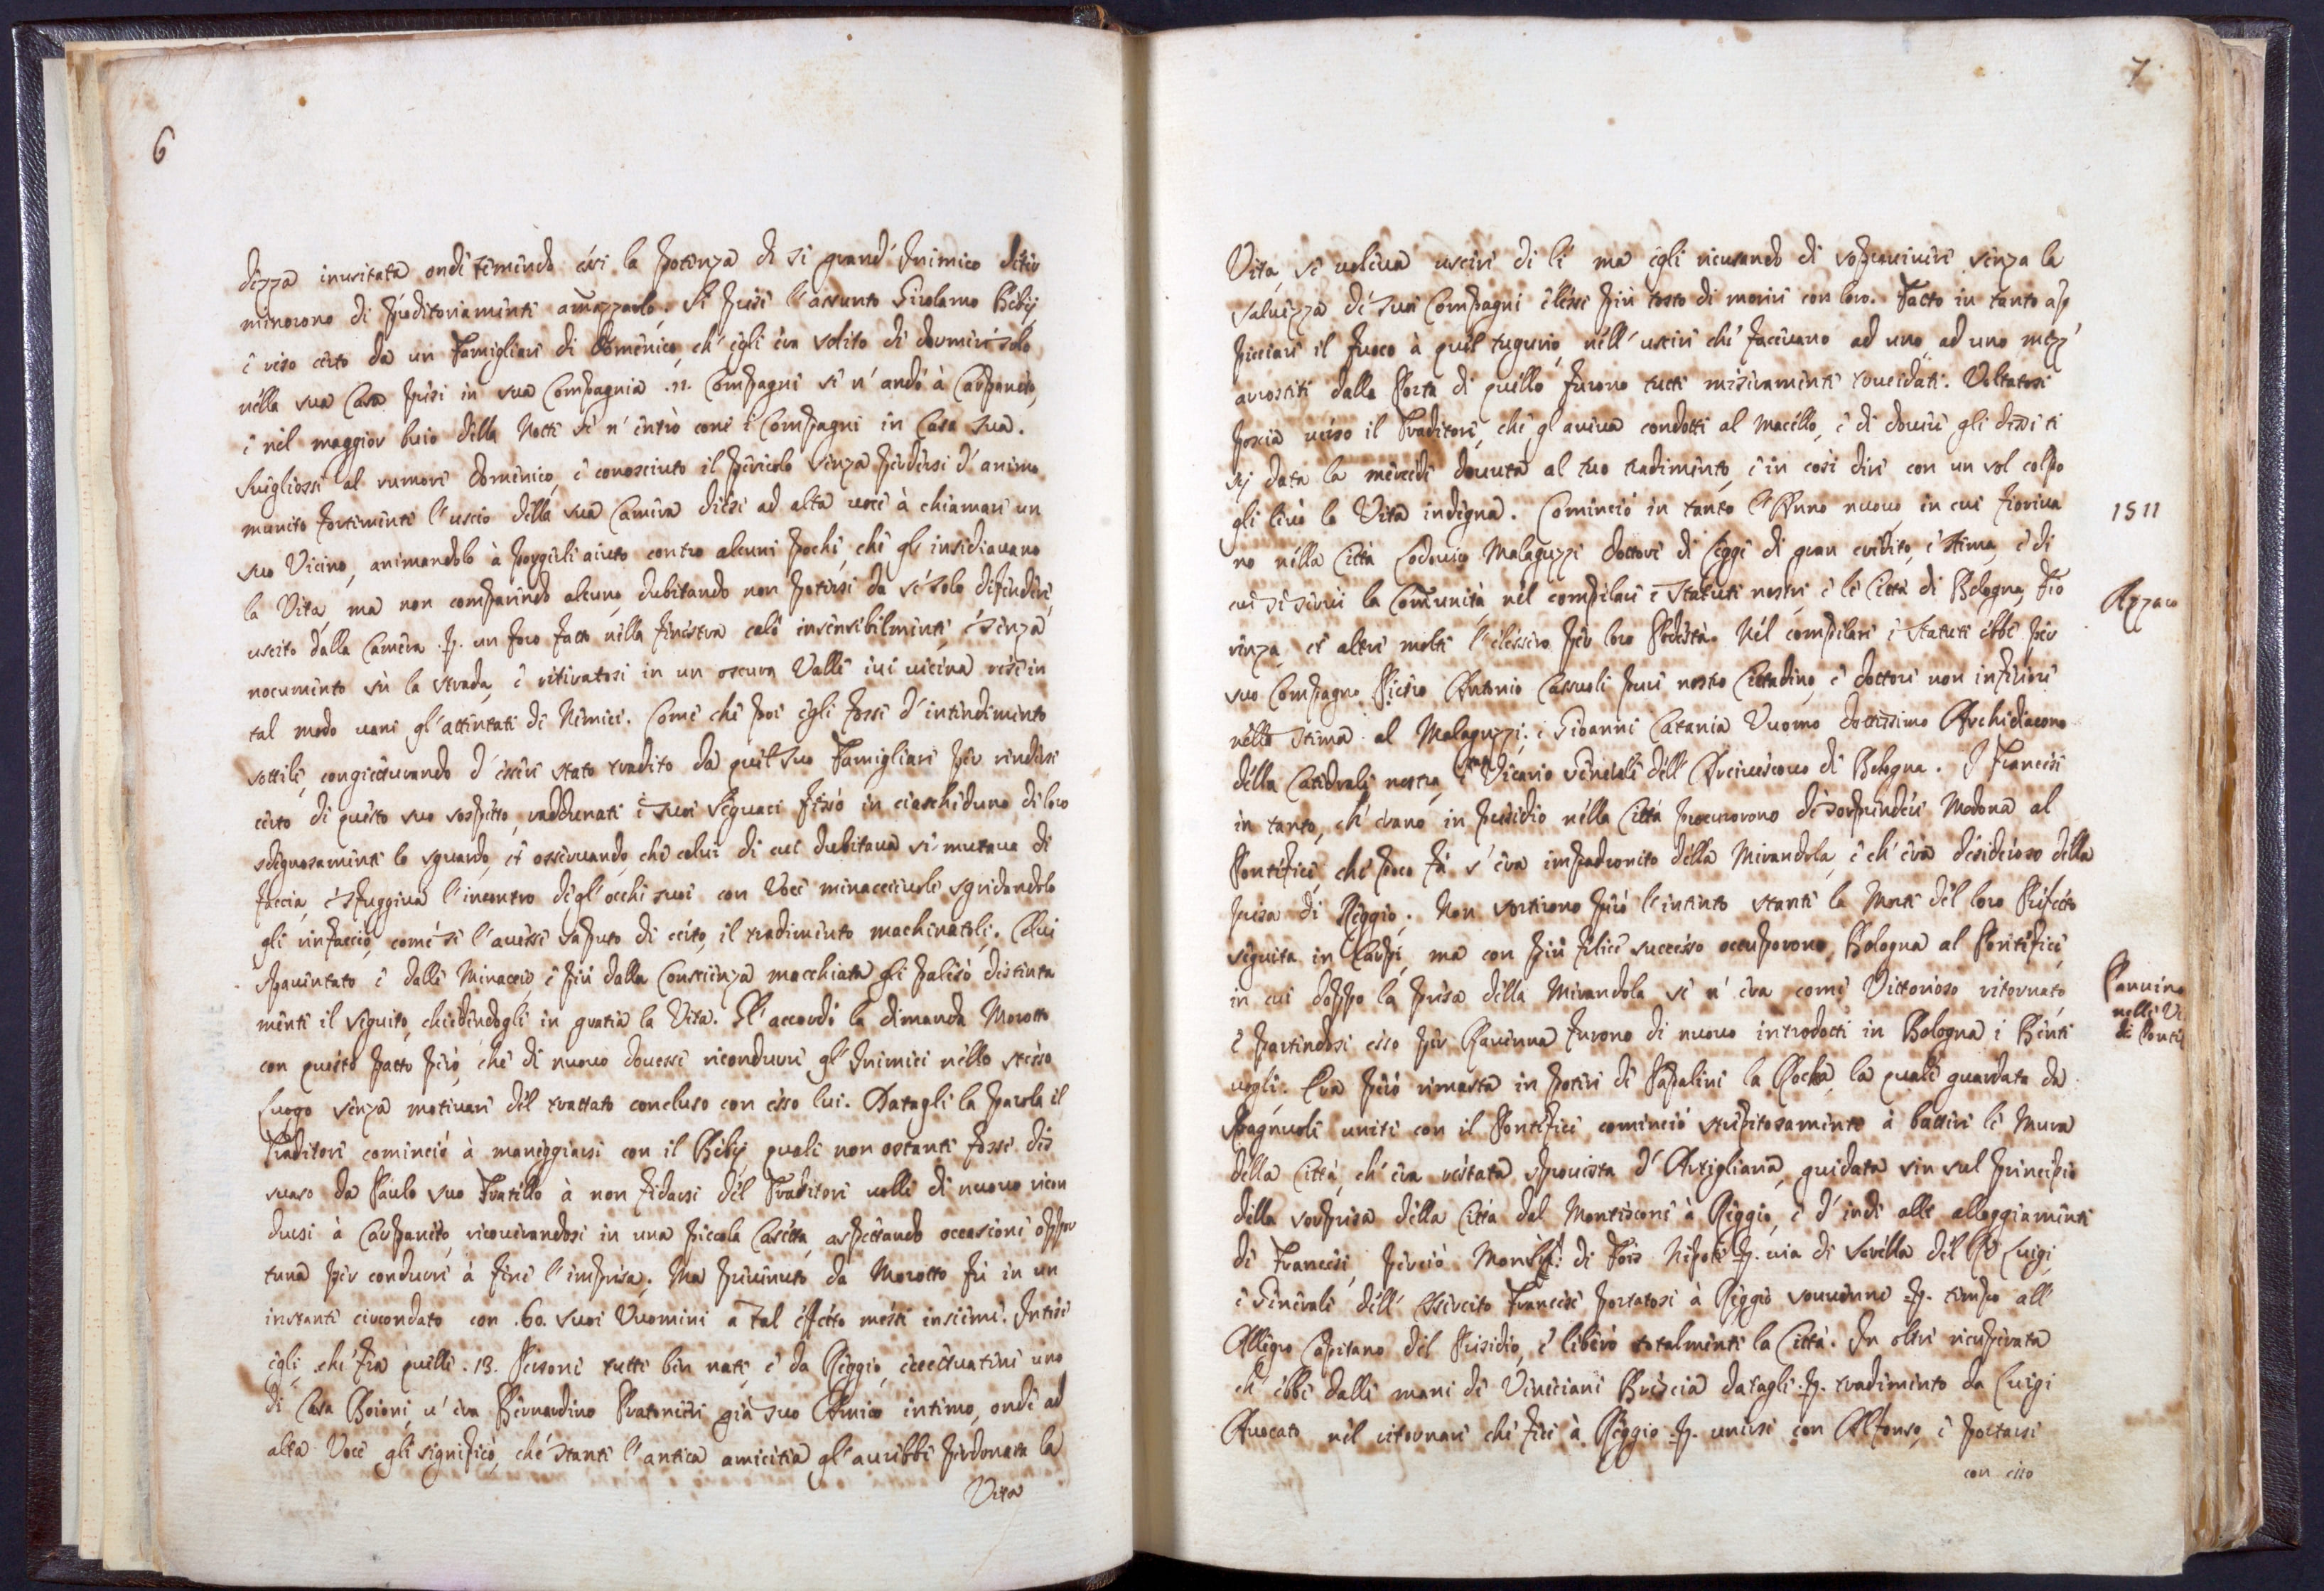 6
dezza inusitata onde temendo essi la potenza di si grand' Inimico deter
minorono di proditoriamente amazzarlo. Si prese l'assunto Girolamo Bebij
e reso certo da un Famigliare di Domenico, ch' egli era solito di dormire solo
nella sua Casa prese in sua Compagnia .11. Compagni se n' andò à Carpaneto,
e nel maggior buio della Notte se n' entrò con i Compagni in Casa sua.
Svegliossi al rumore Domenico, e conosciuto il pericolo senza perdersi d' animo
munito fortemente l' uscio della sua Camera diesi ad alta voce à chiamare un
suo Vicino, animandolo à porgerli aiuto contro alcuni pochi, che gl' insidiavano
la Vita, ma non comparendo alcuno, dubitando non potersi da se solo difendere,
uscito dalla Camera p. un foro fatto nella finestra calò insensibilmente, e senza
nocumento sù la strada, e ritiratosi in un oscura Valle ivi vicina rese in
tal modo vani gl' attentati de Nemici. Come che poi egli fosse d' intendimento
sottile, congietturando d' essere stato tradito da quel suo Famigliare per rendersi
certo di questo suo sospetto, raddunati i suoi seguaci fissò in ciascheduno di loro
sdegnosamente lo sguardo, et osservando, che colui di cui dubitava si mutava di
faccia, e sfuggiva l' incontro degl' occhi suoi con Voce minaccievole sgridandolo
gli rinfacciò, come se l' avesse saputo di certo, il tradimento machinatoli. Colui
spaventato e dalle Minaccie e più dalla Conscienza macchiata gli palesò distinta
mente il seguito, chiedendogli in gratia la Vita. Gl' accordò la dimanda Morotto
con questo patto però, che di nuovo dovesse ricondurre gl' Inimici nello stesso
Luogo senza motivare del trattato concluso con esso lui. Datagli la parola il
Traditore cominciò à maneggiarsi con il Bebij quale non ostante fosse dis
suaso da Paulo suo Fratello à non fidarsi del Traditore volle di nuovo ricon
dursi à Carpaneto, ricoverandosi in una piccola Casetta, aspettando occasione oppor
tuna per condurre à fine l' impresa. Ma prevenuto da Morotto fù in un
instante circondato con .60. suoi Uomini a tal effetto messi insieme. Intese
egli, che fra quelli .13. Persone tutte ben nate, e da Reggio, eccettuatine uno
di Casa Boioni, v' era Bernardino Pratoneri già suo Amico intimo, onde ad
alta Voce gli significò, che stante l' antica amicitia gl' avrebbe perdonata la
Vita
7
Vita, se voleva uscire di lì ma egli ricusando di sopravivere senza la
salvezza de suoi Compagni elesse più tosto di morire con loro. Fatto in tanto ap
picciare il fuoco à quel tugurio, nell' uscire che facevano ad uno ad uno mezz'
arrostiti dalla Porta di quello furono tutti miseramente trucidati. Voltatosi
poscia verso il Traditore, che gl' aveva condotti al Macello, e di dovere gli disse ti
sij data la mercede dovuta al tuo tradimento, e in così dire con un sol colpo
gli levò la Vita indegna. Cominciò in tanto l' Anno nuovo, in cui fioriva
1511
no nella Città Lodovico Malaguzzi Dottore di Leggi di gran credito, e stima, e di
cui si servì la Comunità nel compilare i Statuti nostri, e le Città di Bologna, Fio
Azzaro
renza, et altre molte l' elessero per loro Podestà. Nel compilare i Statuti ebbe per
suo Compagno Pietro Antonio Cassuoli pure nostro Cittadino, e Dottore non inferiore
nella stima al Malaguzzi; e Gioanni Catania Uomo dottissimo Archidiacono
della Catedrale nostra, e Vicario Generale dell' Arcivescovo di Bologna. I Francesi
in tanto, ch' erano in presidio nella Città procurorono di sorprendere Modona al
Pontefice, che poco fà s' era impadronito della Mirandola, e ch' era desideroso della
presa di Reggio. Non sortirono però l' intento stante la Morte del loro Prefetto
seguita in Carpi, ma con più felice successo occuporono Bologna al Pontefice,
in cui doppo la presa della Mirandola se n' era come Vittorioso ritornato,
Panvino
nelle Vi
di Ponti
e partendosi esso per Ravenna furono di nuovo introdotti in Bologna i Benti
vogli. Era però rimasta in potere di Papalini la Rocha, la quale guardata da
Spagnuoli uniti con il Pontefice cominciò strepitosamente à battere le Mura
della Città, ch' era restata sprovista d' Artigliaria, guidata sin sul principio
della sorpresa della Città dal Montisoni à Reggio, e d' indi alli alloggiamenti
di Francesi, perciò Mons.r di Fois Nipote p. via di Sorella del Rè Luigi,
e Generale dell' Essercito Francese portatosi à Reggio sovvenne p. tempo all'
Allegro Capitano del Presidio, e liberò totalmente la Città. In oltre ricuperata
ch' ebbe dalle mani de Veneciani Brescia datagli p. tradimento da Luigi
Avocato nel ritornare che fece à Reggio p. unirsi con Alfonso, e portarsi
con esso